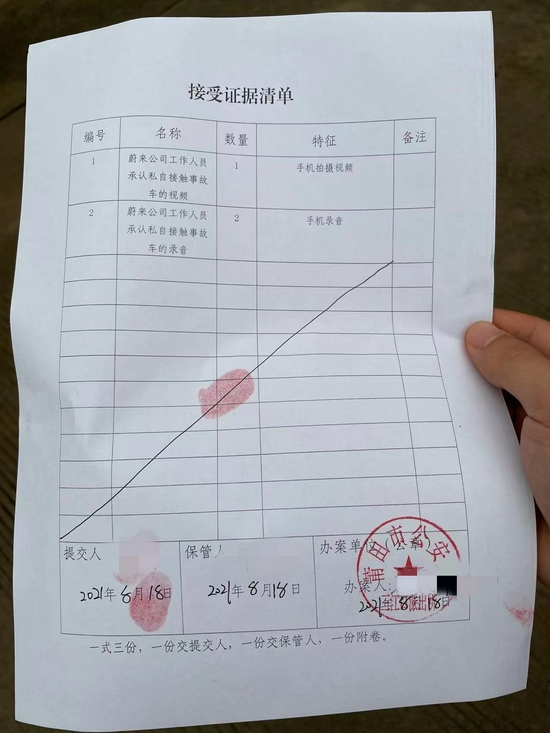 接受证据清单
编号 名称 数量 特征 备注
1 蔚来公司工作人员 1 手机拍摄视频
承认私自接触事故
车的视频
2 蔚来公司工作人员 2 手机录音
承认私自接触事故
车的录音
提交人 保管人 办案单位(公章)
办案人:
2021年8月18日 2021年8月18日 2021年8月18日
莆田市公安
派出所
一式三份，一份交提交人，一份交保管人，一份附卷。